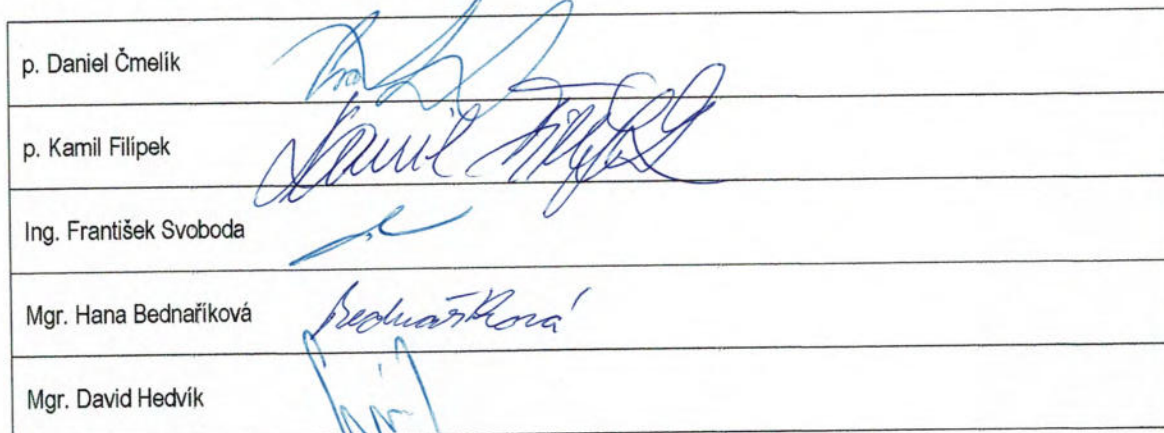 p. Daniel Čmelík
p. Kamil Filípek
Kamil Filípek
Ing. František Svoboda
Mgr. Hana Bednaříková
Bednaříková
Mgr. David Hedvík